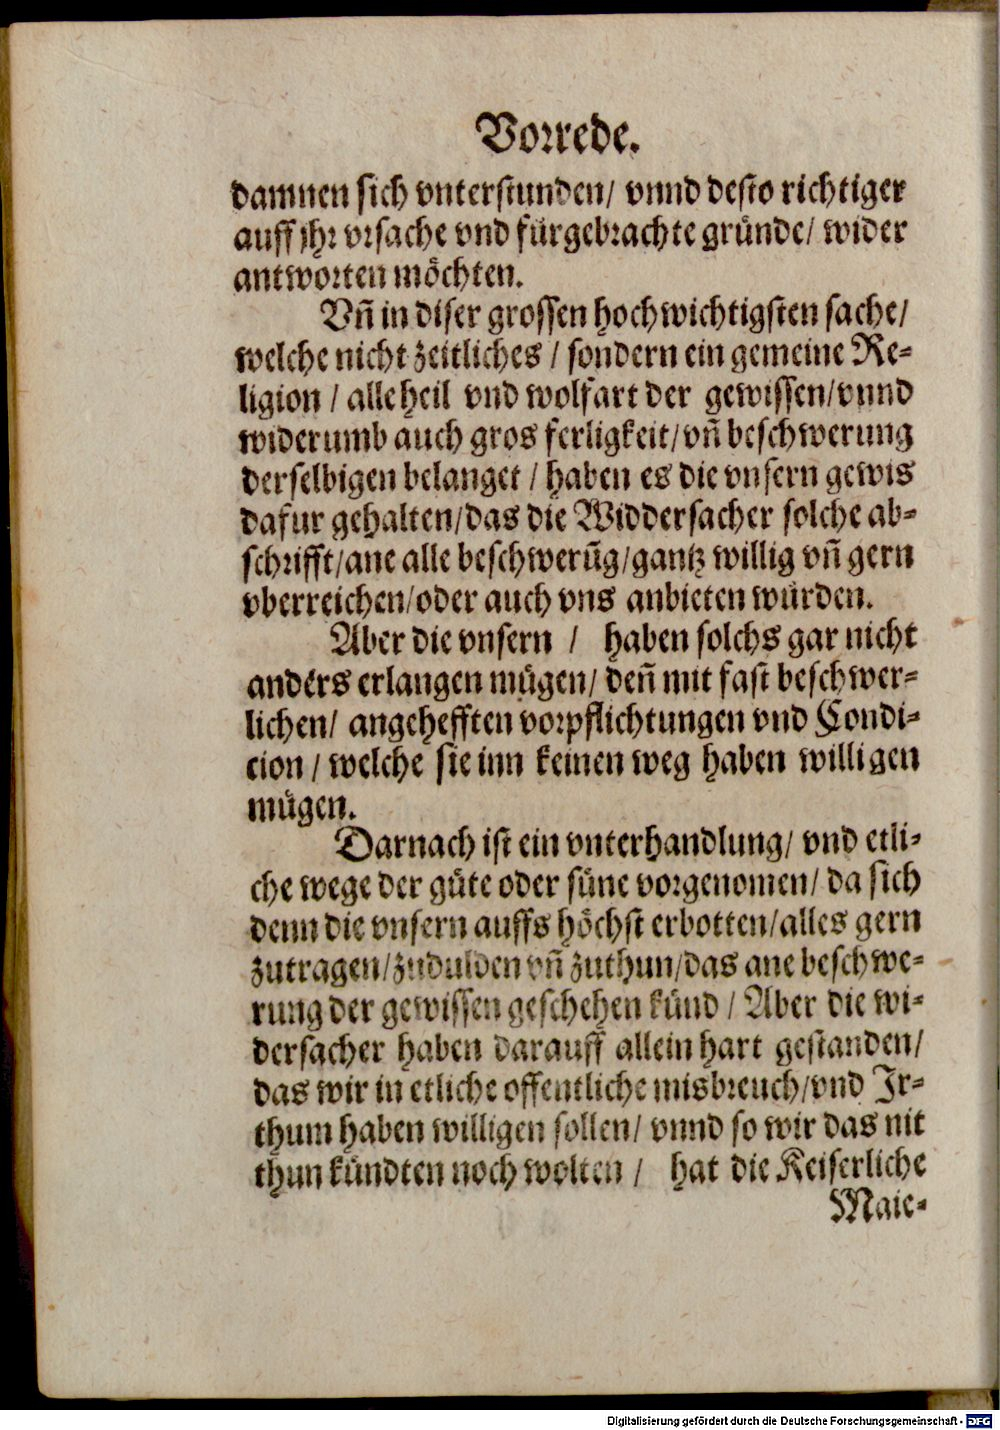 Vorrede.
damnen sich vnterstunden/ vnnd desto richtiger
auff jhr vrsache vnd fürgebrachte gründe/ wider
antworten möchten.
Vñ in diser grossen hochwichtigsten sache/
welche nicht zeitliches / sondern ein gemeine Re-
ligion / alle heil vnd wolfart der gewissen/vnnd
widerumb auch gros ferligkeit/vñ beschwerung
derselbigen belanget / haben es die vnsern gewis
dafur gehalten/das die Widdersacher solche ab-
schrifft/ane alle beschwerũg/gantz willig vñ gern
vberreichen/oder auch vns anbieten würden.
Aber die vnsern / haben solchs gar nicht
anders erlangen mügen/ deñ mit fast beschwer-
lichen/ angehefften vorpflichtungen vnd Condi-
cion / welche sie inn keinen weg haben willigen
mügen.
Darnach ist ein vnterhandlung/ vnd etli-
che wege der güte oder süne vorgenomen/ da sich
denn die vnsern auffs höchst erbotten/alles gern
zutragen/zudulden vñ zuthun/das ane beschwe-
rung der gewissen geschehen künd / Aber die wi-
dersacher haben darauff allein hart gestanden/
das wir in etliche offentliche misbreuch/vnd Jr-
thum haben willigen sollen/ vnnd so wir das nit
thun kündten noch wolten / hat die Keiserliche
Maie-
Digitalisierung gefördert durch die Deutsche Forschungsgemeinschaft - DFG